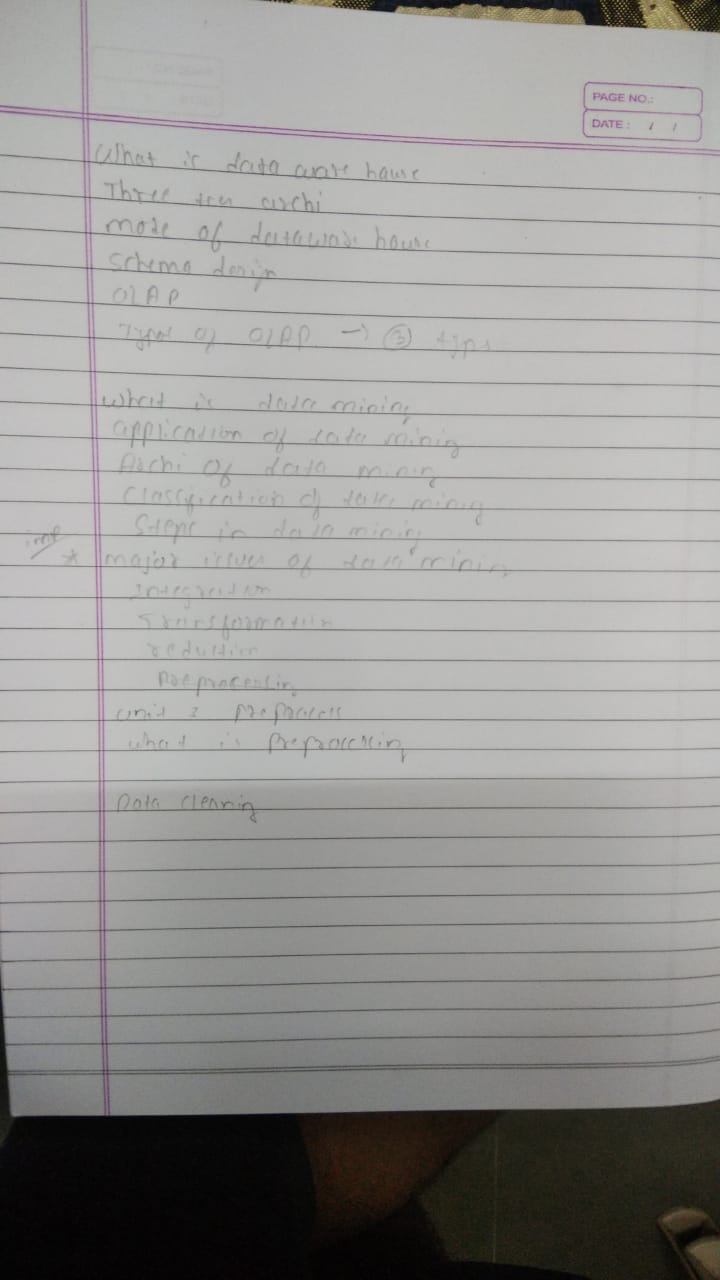 PAGE NO.:
DATE: / /
What is data ware house
Three tier archi
mode of dataware house
Schema design
OLAP
Types of OLAP → ③ type
What is data mining
application of data mining
Archi of data mining
Classification of data mining
Steps in data mining
imp
* major issues of data mining
Integration
Transformation
reduction
Preprocessing
unit 2 preprocess
what is Preprocessing
Data cleaning